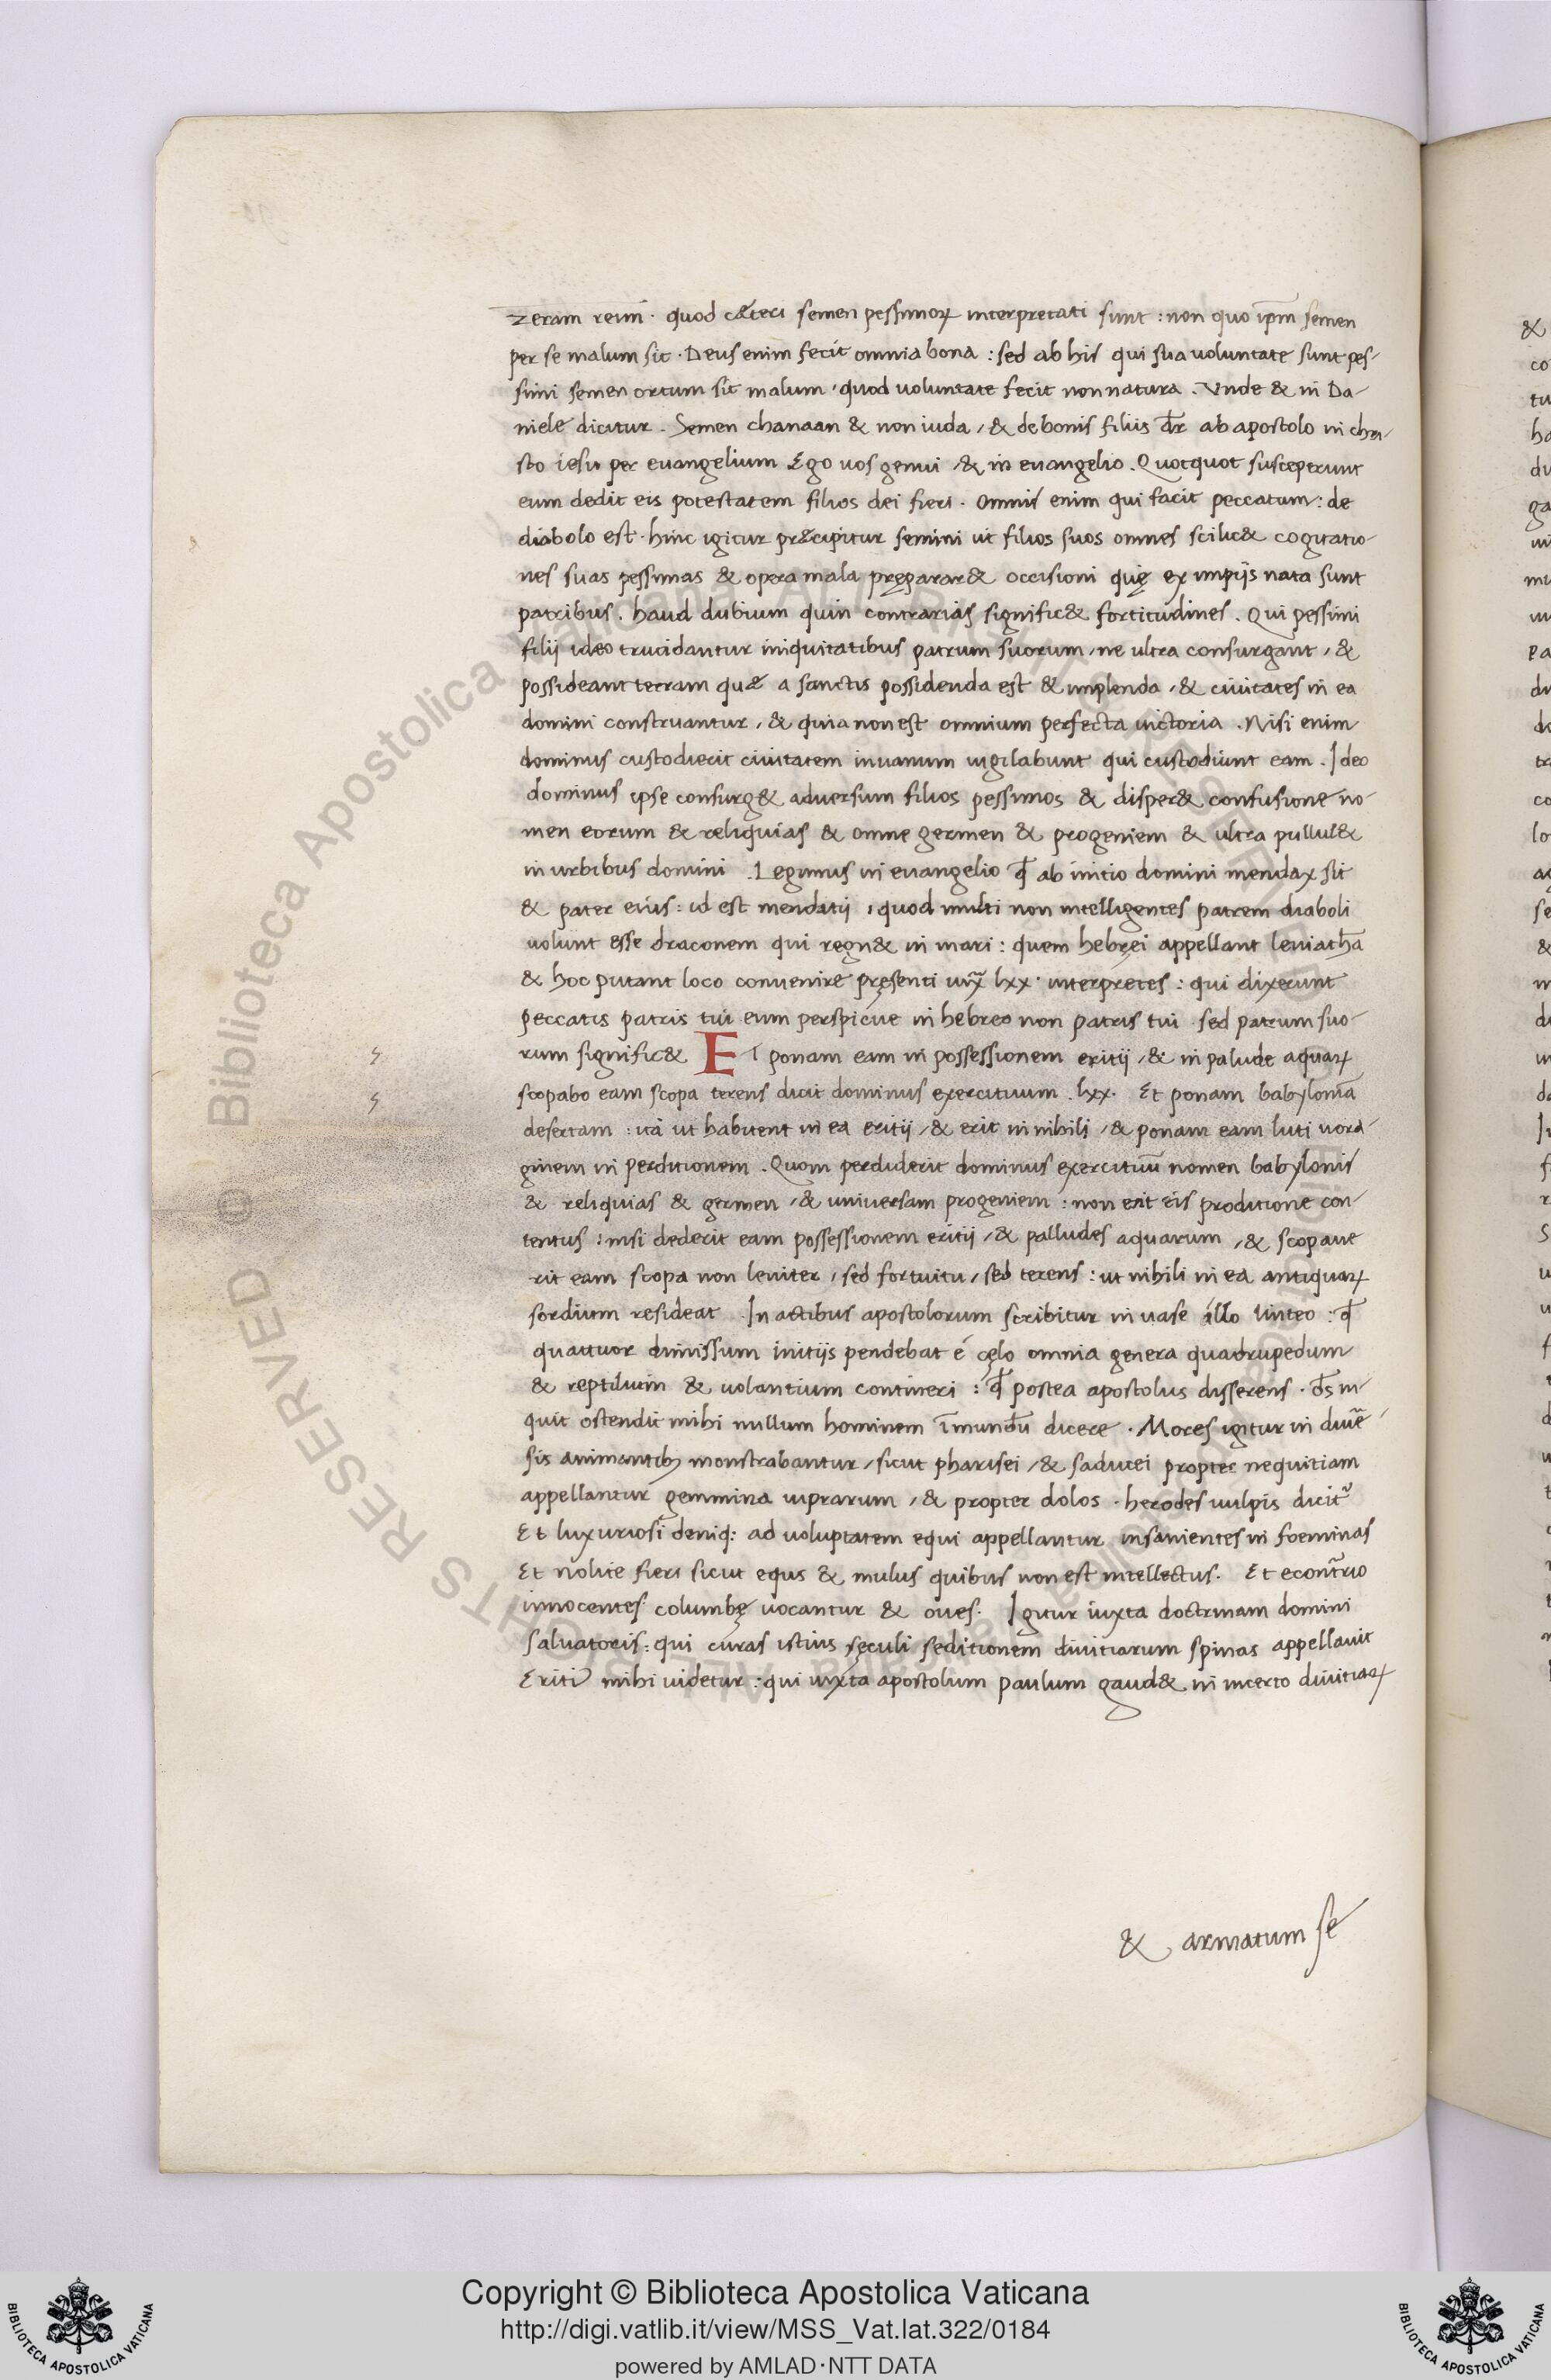 zeram reim̄. quod cæteri semen pessimoꝝ interpretati sunt : non quo ip̄m semen
per se malum sit. Deus enim fecit omnia bona : sed ab his qui sua voluntate sunt pes-
simi semen ortum sit malum, quod uoluntate fecit non natura. Vnde & in Da-
niele dicitur. Semen chanaan & non iuda, & de bonis filiis dr̄ ab apostolo in chri-
sto iesu per euangelium Ego uos genui & in euangelio. Quotquot susceperunt
eum dedit eis potestatem filios dei fieri. Omnis enim qui facit peccatum : de
diabolo est. hinc igitur præcipitur semini ut filios suos omnes scilic& cogitatio-
nes suas pessimas & opera mala pręparar& occisioni quę ex impijs nata sunt
patribus. haud dubium quin contrarias signific& fortitudines. Qui pessimi
filij ideo trucidantur iniquitatibus patrum suorum, ne ultra consurgant, &
possideant terram quæ a sanctis possidenda est & implenda, & ciuitates in ea
domini construantur, & quia non est omnium perfecta uictoria. Nisi enim
dominus custodierit ciuitatem inuanum uigilabunt qui custodiunt eam. Ideo
dominus ipse consurg& aduersum filios pessimos & disper& confusione no-
men eorum & reliquias & omne germen & progeniem & ultra pullul&
in urbibus domini. Legimus in euangelio ꝙ ab initio domini mendax sit
& pater eius : id est mendatij, quod multi non intelligentes patrem diaboli
uolunt esse draconem qui regn& in mari : quem hebręi appellant leuiathā
& hoc putant loco conuenire pręsenti iux̄ lxx. interpretes : qui dixerunt
peccatis patris tui eum perspicue in hebreo non patris tui sed patrum suo-
rum signific& ET ponam eam in possessionem eritij, & in palude aquaꝝ
scopabo eam scopa terens dicit dominus exercituum. lxx. Et ponam babyloniā
desertam : ita ut habitent in ea eritij, & erit in nihili, & ponam eam luti uora-
ginem in perditionem. Quom perdiderit dominus exercituū nomen babylonis
& reliquias & germen, & uniuersam progeniem : non erit eis proditione con-
tentus : nisi dederit eam possessionem eritij, & palludes aquarum, & scopaue
rit eam scopa non leuiter, sed fortuitu, sed terens : ut nihili in ea antiquaꝝ
sordium resideat. In actibus apostolorum scribitur in uase illo linteo : ꝙ
quattuor dimissum initijs pendebat é cęlo omnia genera quadrupedum
& reptiluim & uolantium contineri : ꝙ postea apostolus disserens. d̄s in-
quit ostendit mihi nullum hominem īmundū dicere. Mores igitur in diuē-
sis animantibꝫ monstrabantur, sicut pharisei, & saducei propter nequitiam
appellantur gemmina uiprarum, & propter dolos. herodes uulpis dicit᷑
Et luxuriosi deniqꝫ ad uoluptatem equi appellantur insanientes in foeminas
Et nolite fieri sicut equs & mulus quibus non est intellectus. Et econt̄rio
innocentes columbę uocantur & oues. Igitur iuxta doctrinam domini
saluatoris : qui curas istius sęculi seditionem diuitiarum spinas appellauit
Eriti mihi uidetur : qui iuxta apostolum paulum gaud& in incerto diuitiaꝝ
& armatum se
Copyright © Biblioteca Apostolica Vaticana
http://digi.vatlib.it/view/MSS_Vat.lat.322/0184
powered by AMLAD·NTT DATA